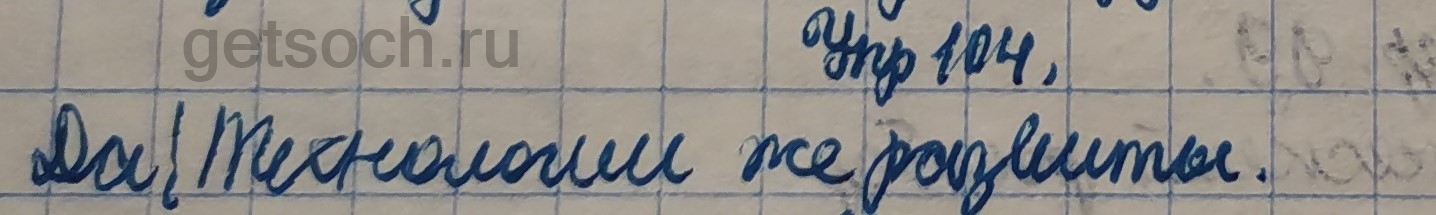 getsoch.ru
Упр 104.
Да! Технологии же развиты.